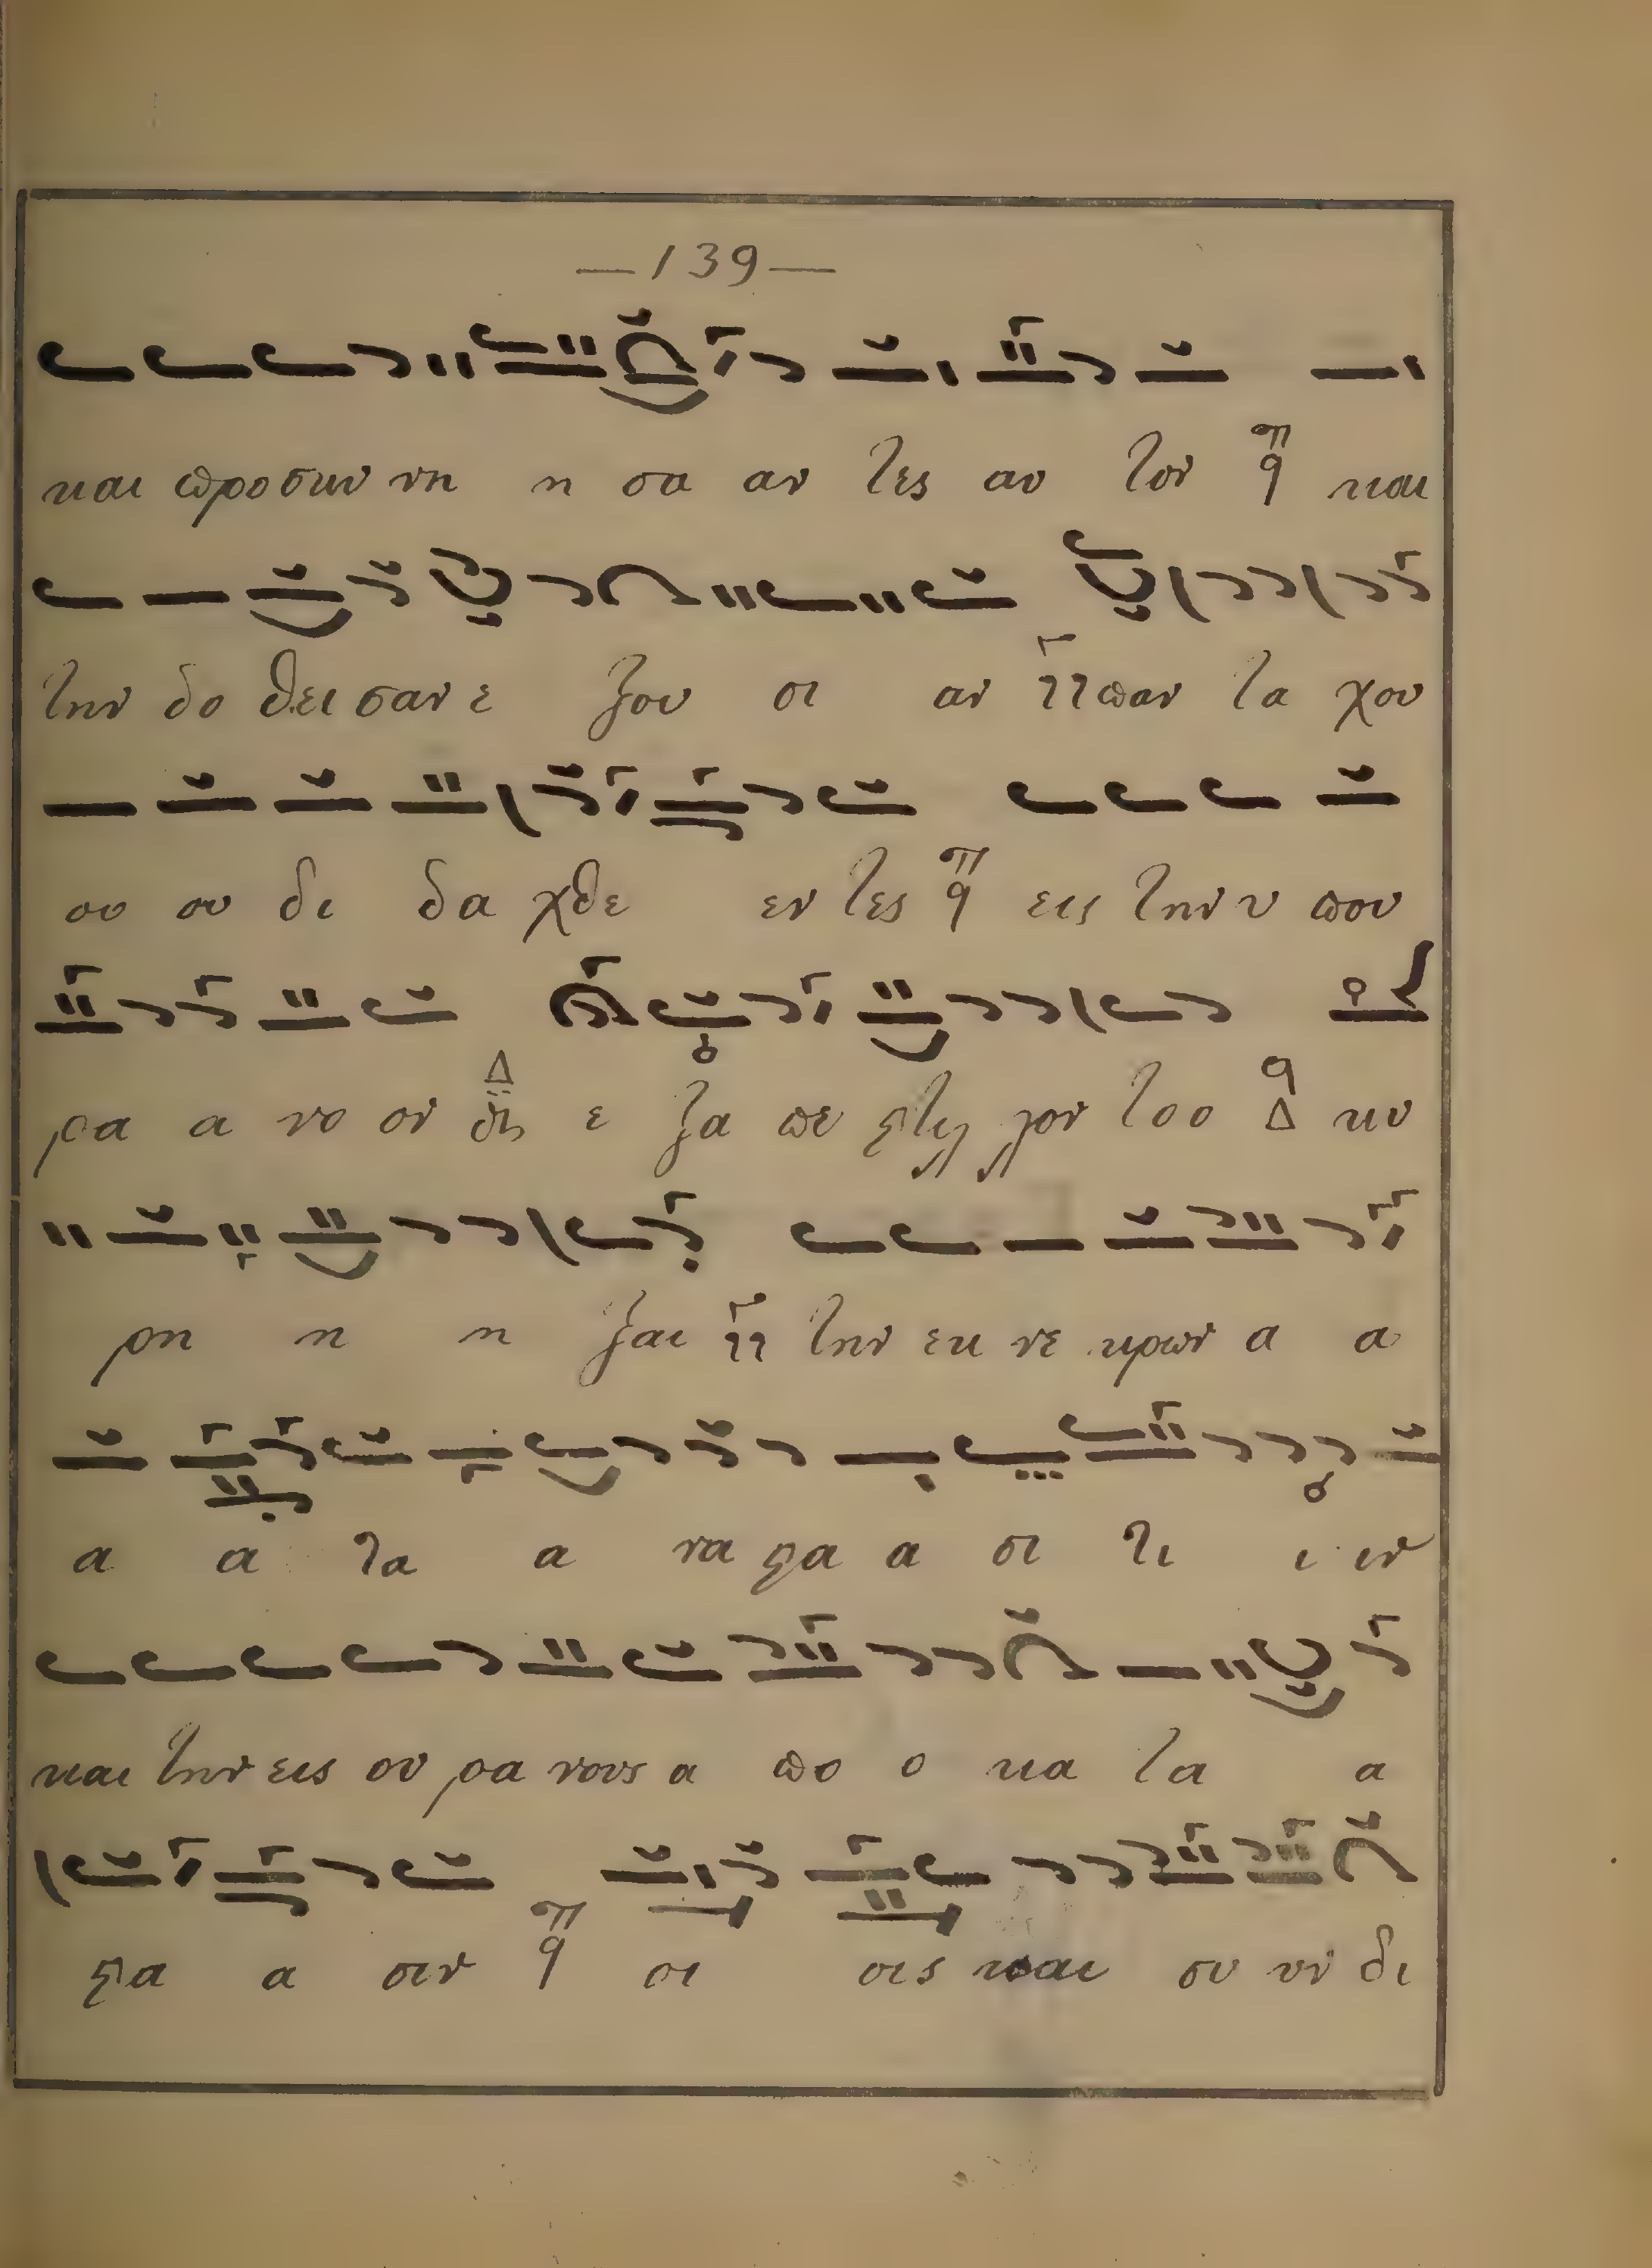 —139—
και προσκυν νη η σα αν τες αυ τον και
την δο θει σαν ε ξου σι αν παν τα χου
ου ου δι δα χθε εν τες εις την υ που
ρα α νο ον Δ ε ξα πε στελ λον το ο Δ κυ
ρη η η ξαι την εκ νε κρων α α
α α τα α να στα α σι τι ι ιν
και την εις ου ρα νους α πο ο κα τα α
στα α σιν οι οις και συ υν δι